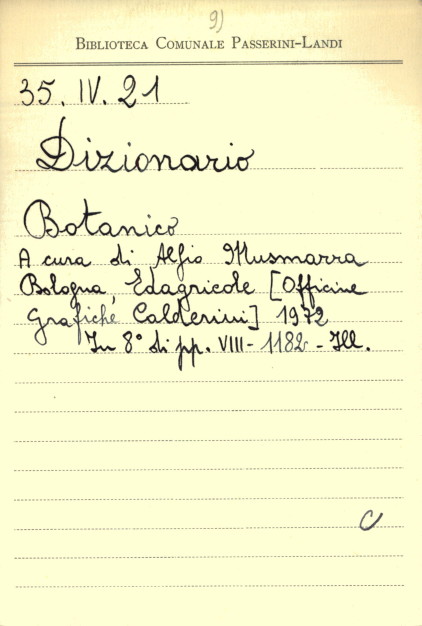 9)
BIBLIOTECA COMUNALE PASSERINI-LANDI
35. IV. 21
Dizionario
Botanico
A cura di Alfio Musmarra
Bologna, Edagricole [Officine
Grafiche Calderini] 1972
In 8° di pp. VIII - 1182 - Ill.
C